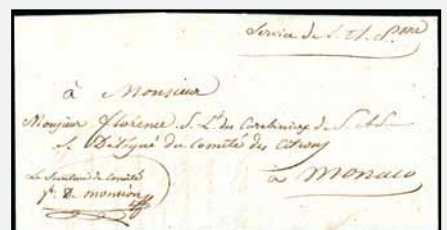 Service de S. A. S.me
à Monsieur
Monsieur Florence S. Lt des Carabiniers de S. A. S.
et Délégué du Comité des Citrons
à Monaco
Le Secrétaire du Comité